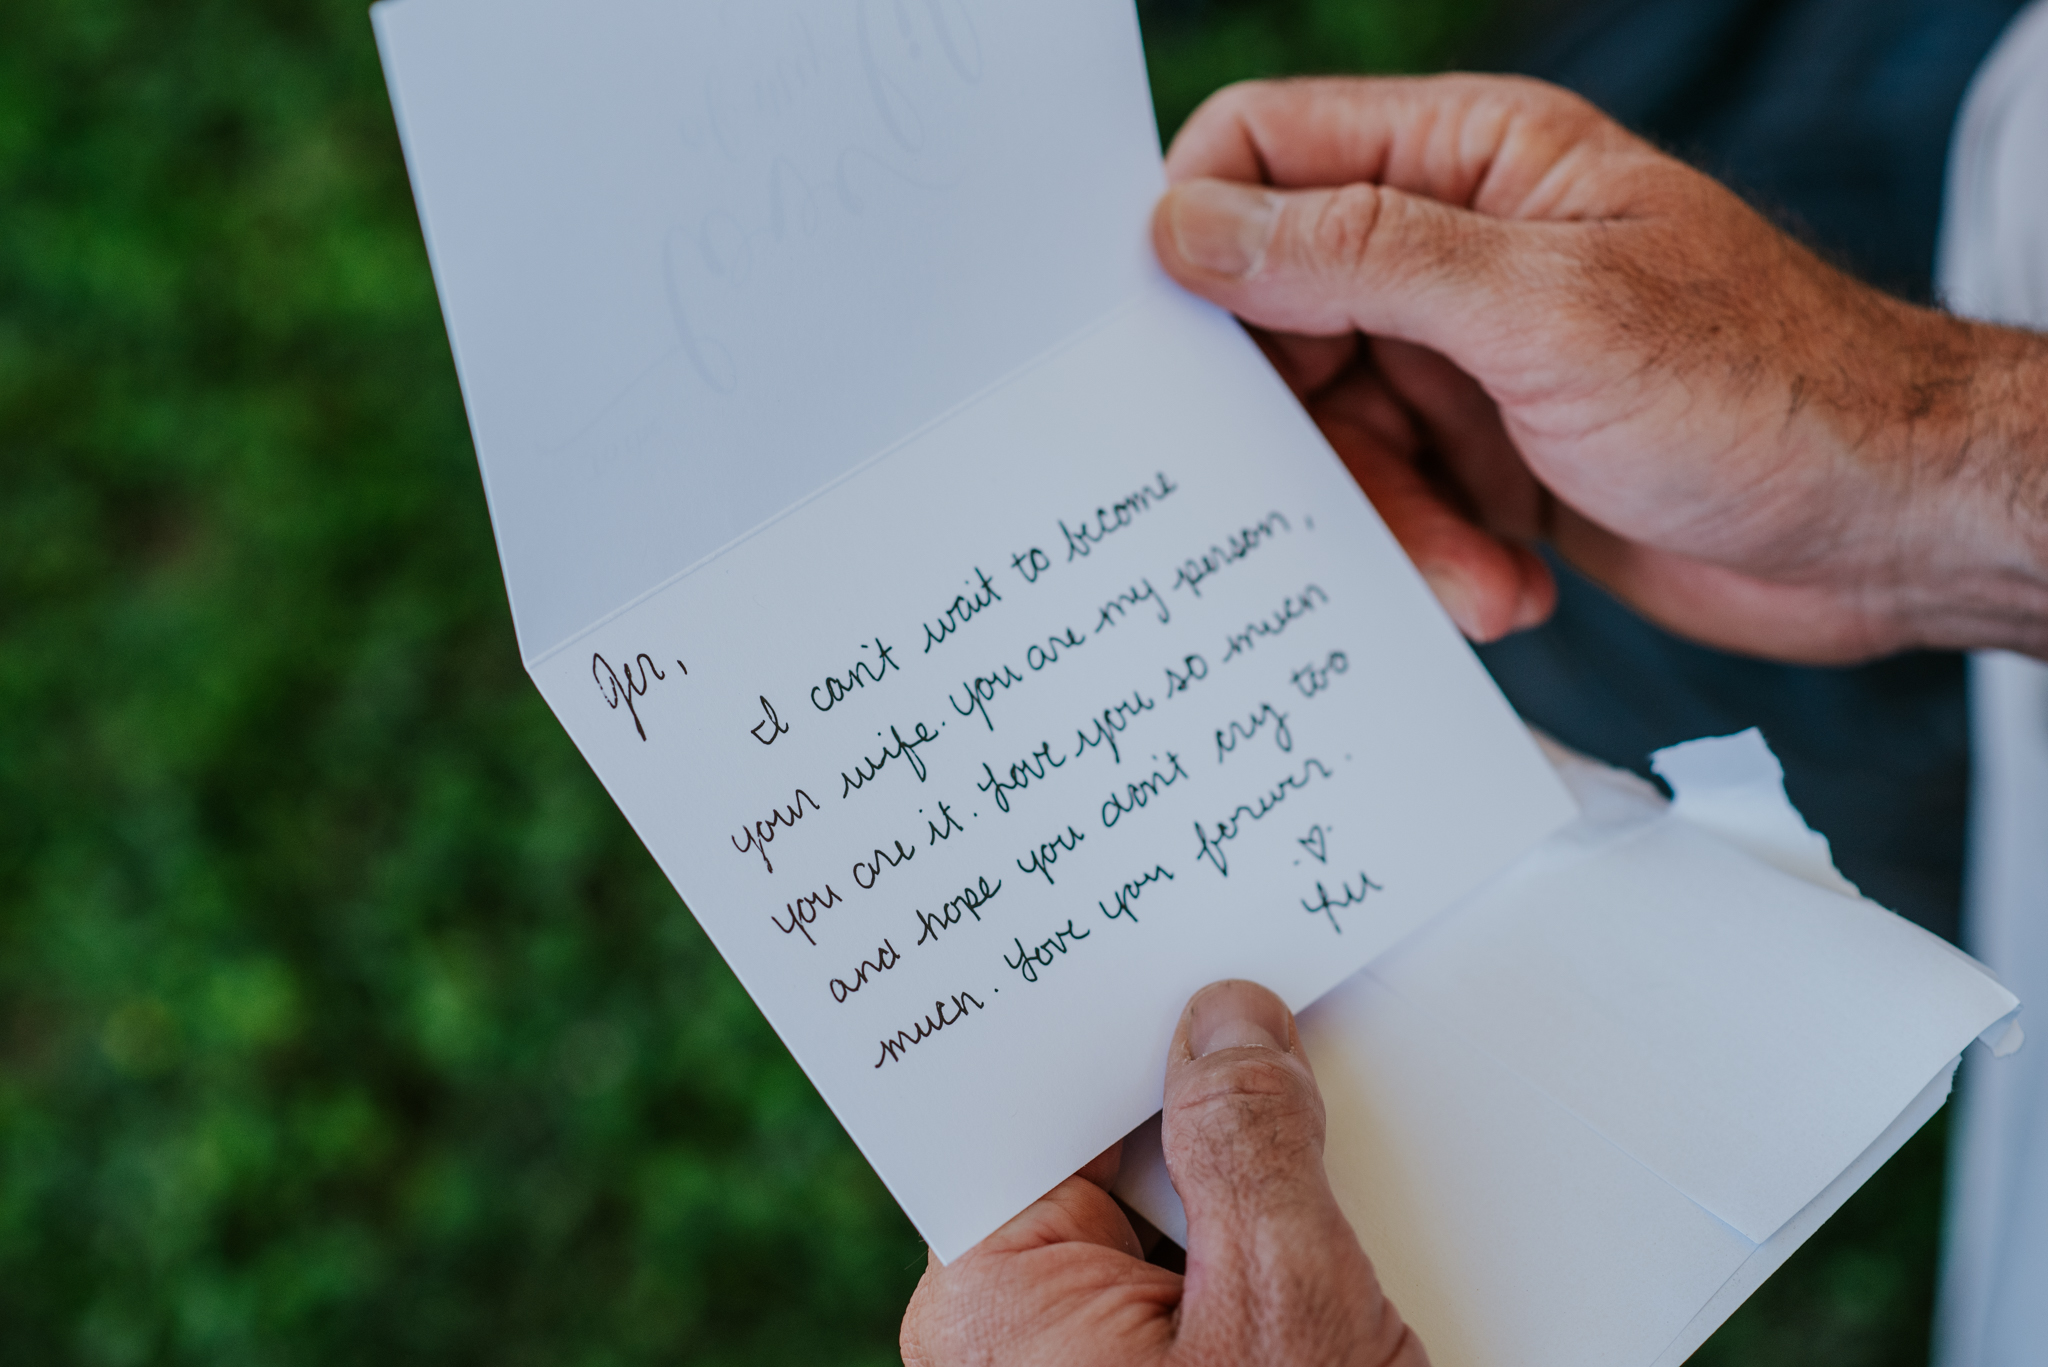 Ger,
I can't wait to become
your wife. You are my person,
you are it. Love you so much
and hope you don't cry too
much. Love you forever.
♡